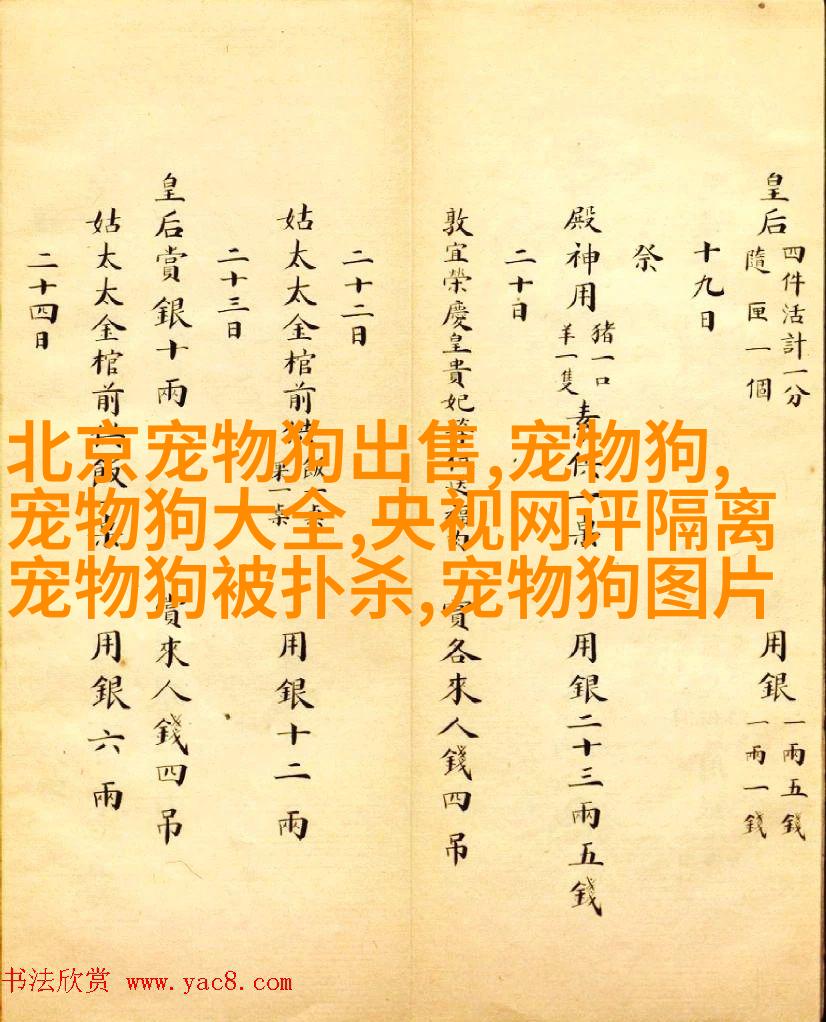 皇后
四件活計一分
隨匣一個
用銀
一兩五錢
一兩一錢
十九日
祭
殿神用
豬一口
羊一隻
素
用銀二十三兩五錢
二十日
敦宜榮慶皇貴妃
賞各來人錢四吊
二十二日
姑太太金棺前
飯一桌
果一桌
用銀十二兩
二十三日
皇后賞銀十兩
賞來人錢四吊
姑太太金棺前
飯
用銀六兩
二十四日
北京宠物狗出售,宠物狗,
宠物狗大全,央视网评隔离
宠物狗被扑杀,宠物狗图片
书法欣赏 www.yac8.com